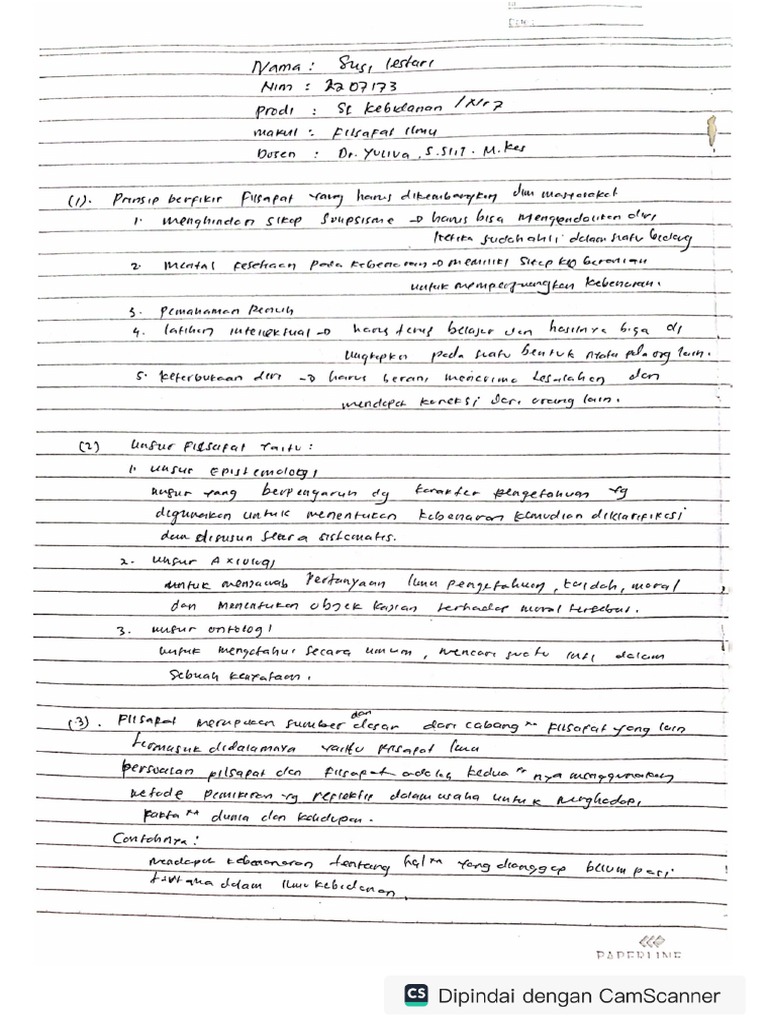 Nama : Susi lestari
Nim : 2207173
Prodi : S1 Kebidanan / Nr7
makul : Filsafat Ilmu
Dosen : Dr. Yuliva, S.SiT. M.Kes
(1). Prinsip berfikir Filsapat yang harus dikembangkan dlm masyarakat
1. menghindari sikap Soupsisme → harus bisa Mengendalikan diri
ketika sudah ahli dalam suatu bidang
2. mental kesetiaan pada kebenaran → memiliki sikap keberanian
untuk memperjuangkan kebenaran.
3. Pemahaman Penuh
4. latihan intelektual → harus terus belajar dan hasilnya bisa di
Ungkapkan pada suatu bentuk nyata pda org lain.
5. keterbukaan diri → harus berani menerima kesalahan dan
mendapat koreksi dari orang lain.
(2) Unsur Filsapat Yaitu :
1. unsur Epistemologi
unsur yang berpengaruh dg karakter pengetahuan yg
digunakan untuk menentukan kebenaran kemudian diklarifikasi
dan disusun secara sistematis.
2. unsur Axiologi
untuk menjawab Pertanyaan ilmu pengetahuan, kaidah, moral
dan Menentukan objek kajian terhadap moral tersebut.
3. unsur ontologi
untuk mengetahui secara umum, mencari suatu inti dalam
sebuah kenyataan.
(3). Filsapat merupakan sumber dan dasar dari cabang" Filsapat yang lain
termasuk didalamnya yaitu filsapat ilmu
persuaian pilsapat dan Filsapat adalah kedua" nya menggunakan
metode pemikiran yg replektif dalam usaha untuk menghadapi
fakta" dunia dan kehidupan.
Contohnya :
mendapat kebenaran tentang hal" yang dianggap belum pasti
terutama dalam ilmu kebidanan.
PAPERLINE
CS Dipindai dengan CamScanner